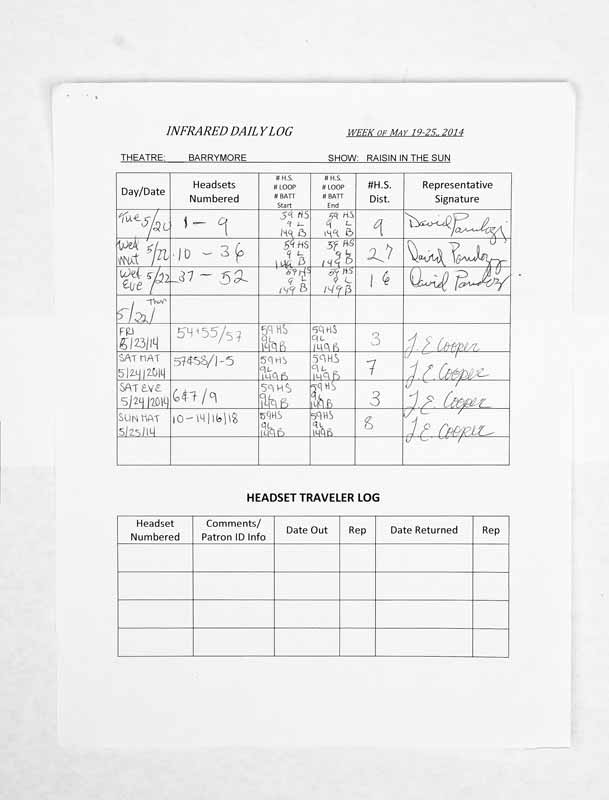 INFRARED DAILY LOG WEEK OF MAY 19-25, 2014
THEATRE: BARRYMORE SHOW: RAISIN IN THE SUN
Day/Date Headsets Numbered # H.S. # LOOP # BATT Start # H.S. # LOOP # BATT End #H.S. Dist. Representative Signature
Tue 5/20 1 - 9 59 HS 9 L 149 B 59 HS 9 L 149 B 9 David
Wed Mat 5/22 10 - 36 59 HS 9L 149 B 59 HS 9L 149 B 27 David
Wed Eve 5/22 37 - 52 59 HS 9 L 149 B 59 HS 9 L 149 B 16 David
Thur 5/22/
FRI 5/23/14 54+55/57 59HS 9L 149B 59HS 9L 149B 3 J. E. Cooper
SAT MAT 5/24/2014 57&58/1-5 59HS 9L 149B 59HS 9L 149B 7 J. E. Cooper
SAT EVE 5/24/2014 6&7/9 59HS 9L 149B 59HS 9L 149B 3 J. E. Cooper
SUN MAT 5/25/14 10-14/16/18 59HS 9L 149B 59HS 9L 149B 8 J. E. Cooper
HEADSET TRAVELER LOG
Headset Numbered Comments/ Patron ID Info Date Out Rep Date Returned Rep